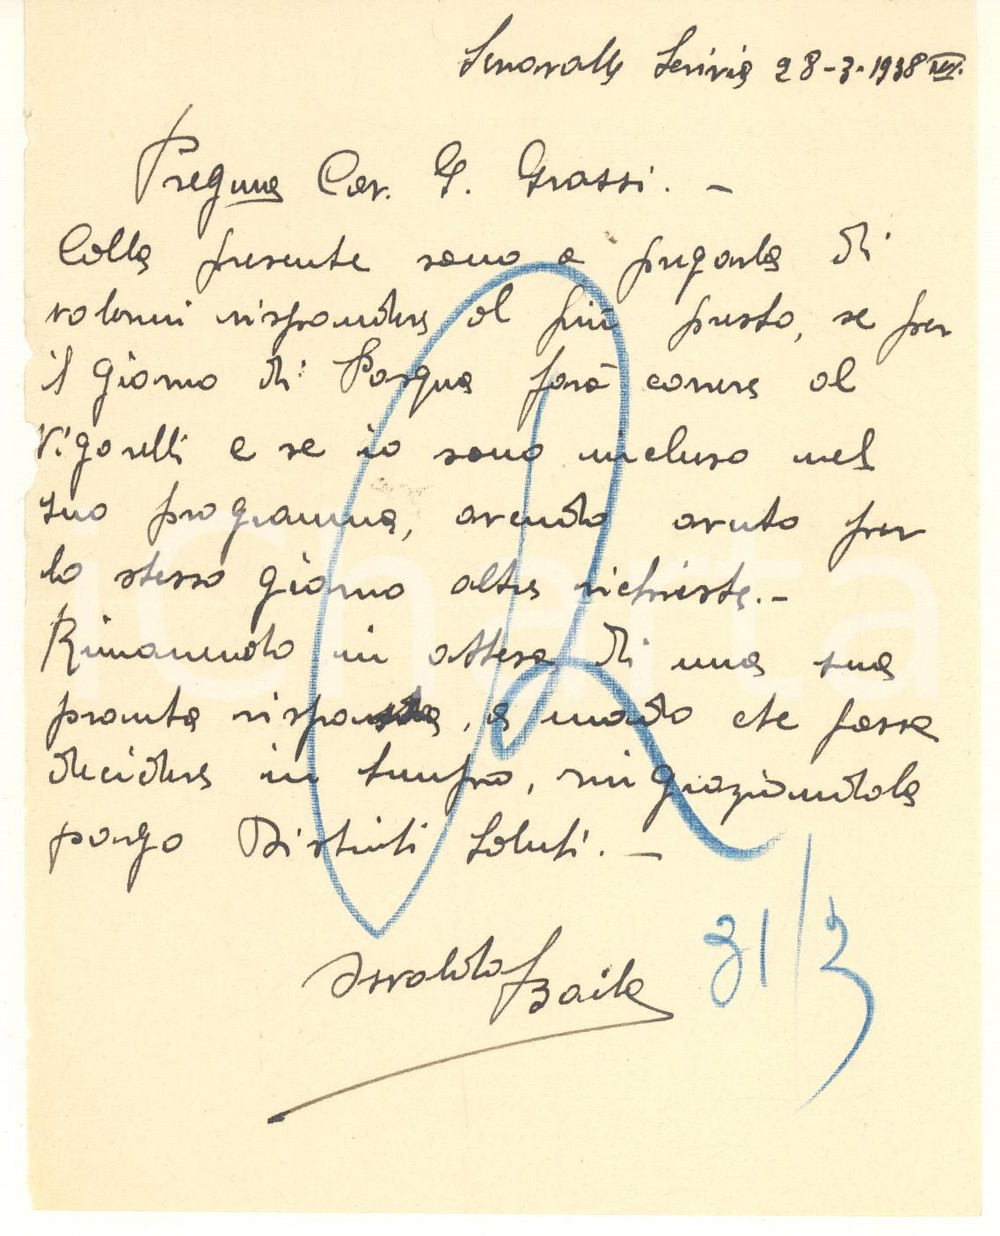 Serravalle Scrivia 28-3-1938 XVI.
Pregmo Cav. G. Grassi. -
Colla presente sono a pregarla di
volermi rispondere al più presto, se per
il giorno di Pasqua farà correre al
Vigorelli e se io sono incluso nel
suo programma, avendo avuto per
lo stesso giorno altre richieste. -
Rimanendo in attesa di una sua
pronta risposta, a modo che possa
decidere in tempo, ringraziandola
porgo Distinti Saluti. -
Osvaldo Bailo
31/3
iCharta